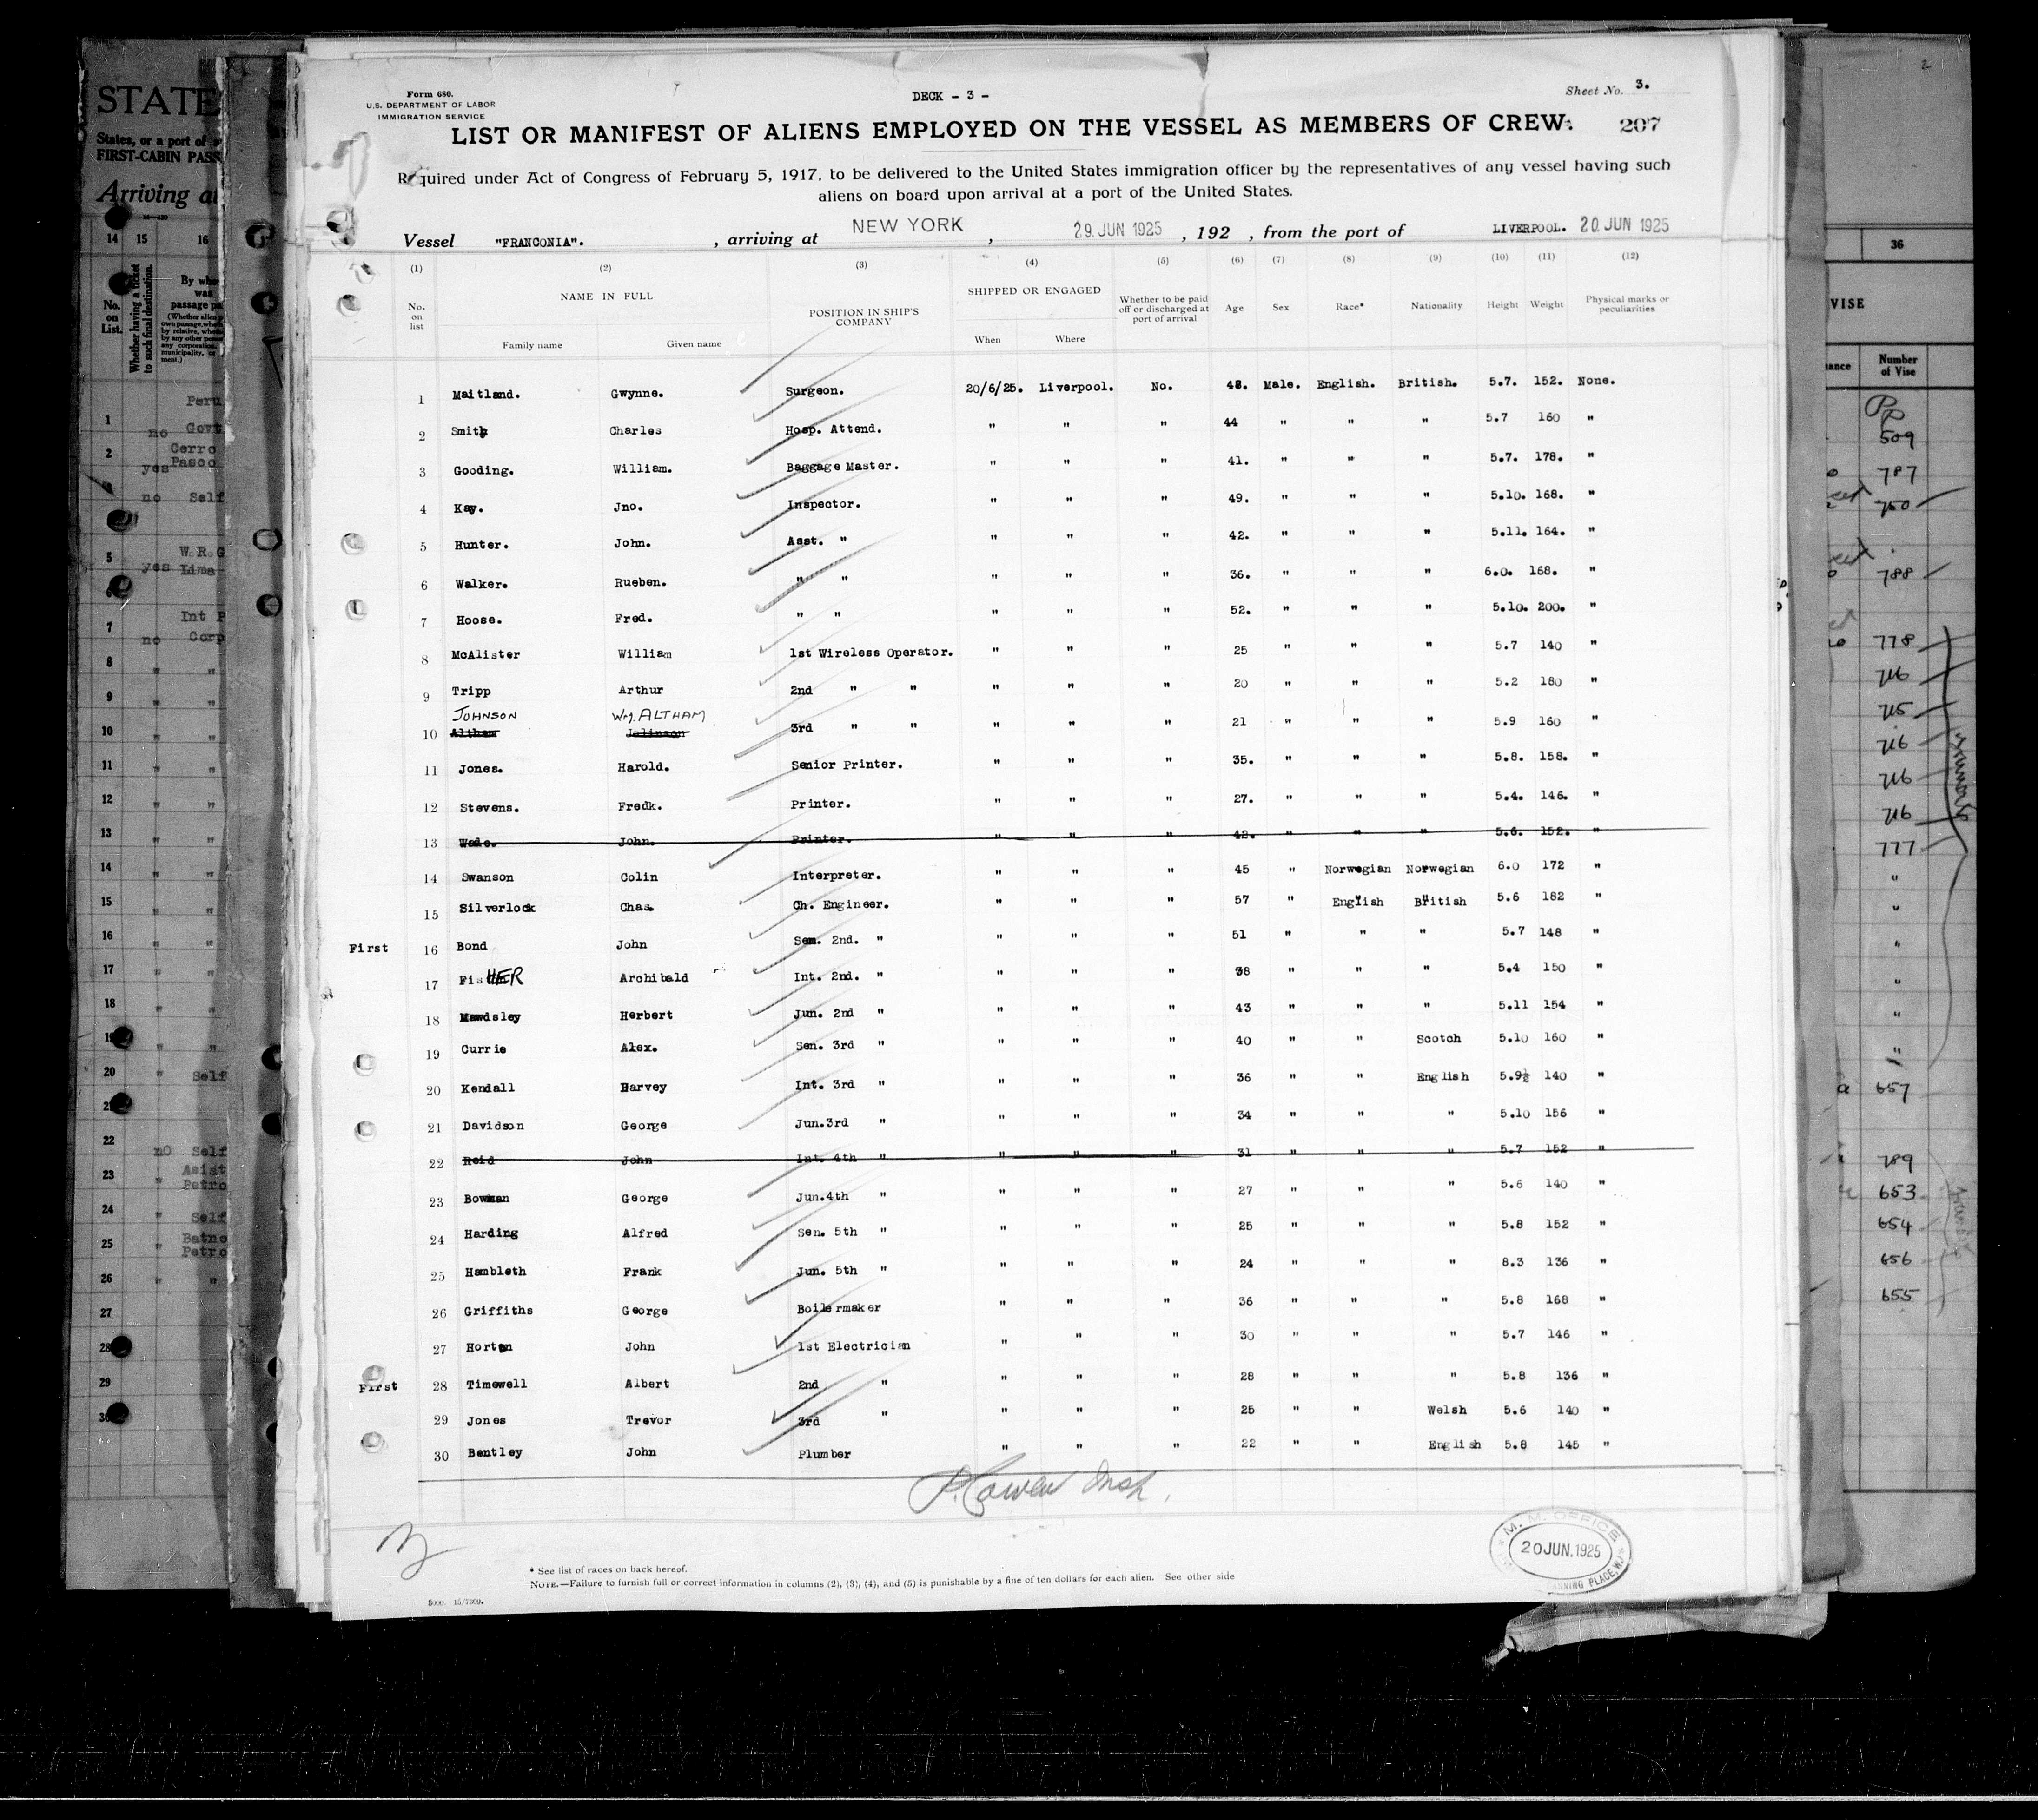 Form 680.
U.S. DEPARTMENT OF LABOR
IMMIGRATION SERVICE
DECK - 3 -
Sheet No. 3.
LIST OR MANIFEST OF ALIENS EMPLOYED ON THE VESSEL AS MEMBERS OF CREW. 207
Required under Act of Congress of February 5, 1917, to be delivered to the United States immigration officer by the representatives of any vessel having such
aliens on board upon arrival at a port of the United States.
Vessel "FRANCONIA". , arriving at NEW YORK , 29 JUN 1925 , 192 , from the port of LIVERPOOL. 20 JUN 1925
(1) (2) (3) (4) (5) (6) (7) (8) (9) (10) (11) (12)
No. on list NAME IN FULL Family name Given name POSITION IN SHIP'S COMPANY SHIPPED OR ENGAGED When Where Whether to be paid off or discharged at port of arrival Age Sex Race* Nationality Height Weight Physical marks or peculiarities
1 Maitland. Gwynne. Surgeon. 20/6/25. Liverpool. No. 48. Male. English. British. 5.7. 152. None.
2 Smith Charles Hosp. Attend. " " " 44 " " " 5.7 160 "
3 Gooding. William. Baggage Master. " " " 41. " " " 5.7. 178. "
4 Kay. Jno. Inspector. " " " 49. " " " 5.10. 168. "
5 Hunter. John. Asst. " " " " 42. " " " 5.11. 164. "
6 Walker. Rueben. " " " " " 36. " " " 6.0. 168. "
7 Hoose. Fred. " " " " " 52. " " " 5.10. 200. "
8 McAlister William 1st Wireless Operator. " " " 25 " " " 5.7 140 "
9 Tripp Arthur 2nd " " " " " 20 " " " 5.2 180 "
JOHNSON Wm. ALTHAM
10 Altham Johnson 3rd " " " " " 21 " " " 5.9 160 "
11 Jones. Harold. Senior Printer. " " " 35. " " " 5.8. 158. "
12 Stevens. Fredk. Printer. " " " 27. " " " 5.4. 146. "
13 Wade. John. Printer. " " " 42. " " " 5.6. 152. "
14 Swanson Colin Interpreter. " " " 45 " Norwegian Norwegian 6.0 172 "
15 Silverlock Chas. Ch. Engineer. " " " 57 " English British 5.6 182 "
First 16 Bond John Sen. 2nd. " " " " 51 " " " 5.7 148 "
17 FisHER Archibald Int. 2nd. " " " " 38 " " " 5.4 150 "
18 Mawdsley Herbert Jun. 2nd " " " " 43 " " " 5.11 154 "
19 Currie Alex. Sen. 3rd " " " " 40 " " Scotch 5.10 160 "
20 Kendall Harvey Int. 3rd " " " " 36 " " English 5.9½ 140 "
21 Davidson George Jun.3rd " " " " 34 " " " 5.10 156 "
22 Reid John Int. 4th " " " " 31 " " " 5.7 152 "
23 Bowman George Jun.4th " " " " 27 " " " 5.6 140 "
24 Harding Alfred Sen. 5th " " " " 25 " " " 5.8 152 "
25 Hambleth Frank Jun. 5th " " " " 24 " " " 8.3 136 "
26 Griffiths George Boilermaker " " " 36 " " " 5.8 168 "
27 Horton John 1st Electrician " " " 30 " " " 5.7 146 "
First 28 Timewell Albert 2nd " " " " 28 " " " 5.8 136 "
29 Jones Trevor 3rd " " " " 25 " " Welsh 5.6 140 "
30 Bentley John Plumber " " " 22 " " English 5.8 145 "
P. Cowen Insp.
M. M. OFFICE
20 JUN. 1925
* See list of races on back hereof.
NOTE.—Failure to furnish full or correct information in columns (2), (3), (4), and (5) is punishable by a fine of ten dollars for each alien. See other side
STATE
States, or a port of
FIRST-CABIN PASS
Arriving at
14 15 16
No. on List.
Whether having a ticket to such final destination.
Peru
1 no Govt
2 Cerro
yes Pasco
no Self
5 W.R.G
yes Lima
7 Int P
no Corp
8 " "
9 " "
10 " "
11 " "
12 " "
13 " "
14 " "
15 " "
16 " "
17 " "
18 " "
19 " "
20 " Self
22 no Self
23 " Asiat
Petro
24 " Self
25 " Batno
Petro
26 " "
27
28
29
30
2
36
VISE
Number of Vise
509
787
750
788
778
716
715
716
716
716
777
"
"
"
"
"
"
657
789
653
654
656
655